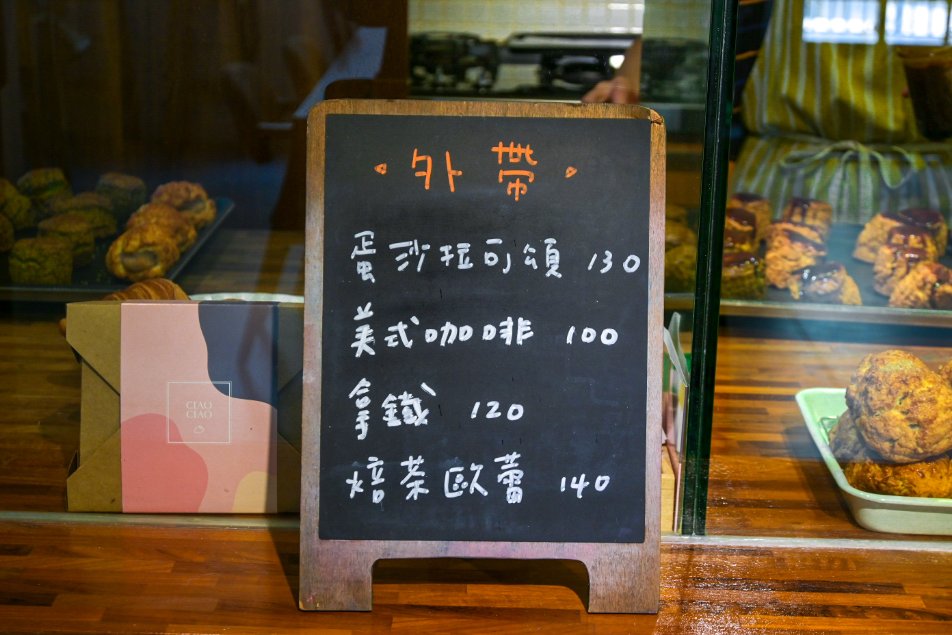 外帶
蛋沙拉可頌 130
美式咖啡 100
拿鐵 120
焙茶歐蕾 140
CIAO
CIAO